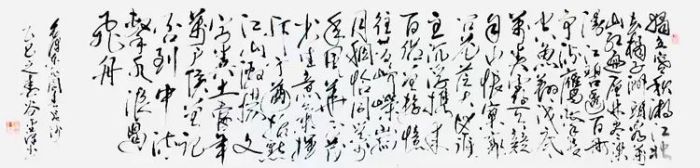 独立寒秋湘江北
去橘子洲头看万
山红遍层林尽染
漫江碧透百舸
争流鹰击长
空鱼翔浅底
万类霜天竞
自由怅寥
廓问苍茫大地谁
主沉浮携来
百侣曾游忆
往昔峥嵘岁
月稠恰同学
少年风华正茂
书生意气挥
斥方遒指点
江山激扬文
字粪土当年
万户侯曾记
否到中流
击水浪遏
飞舟
毛泽东词长沙
乙巳之春